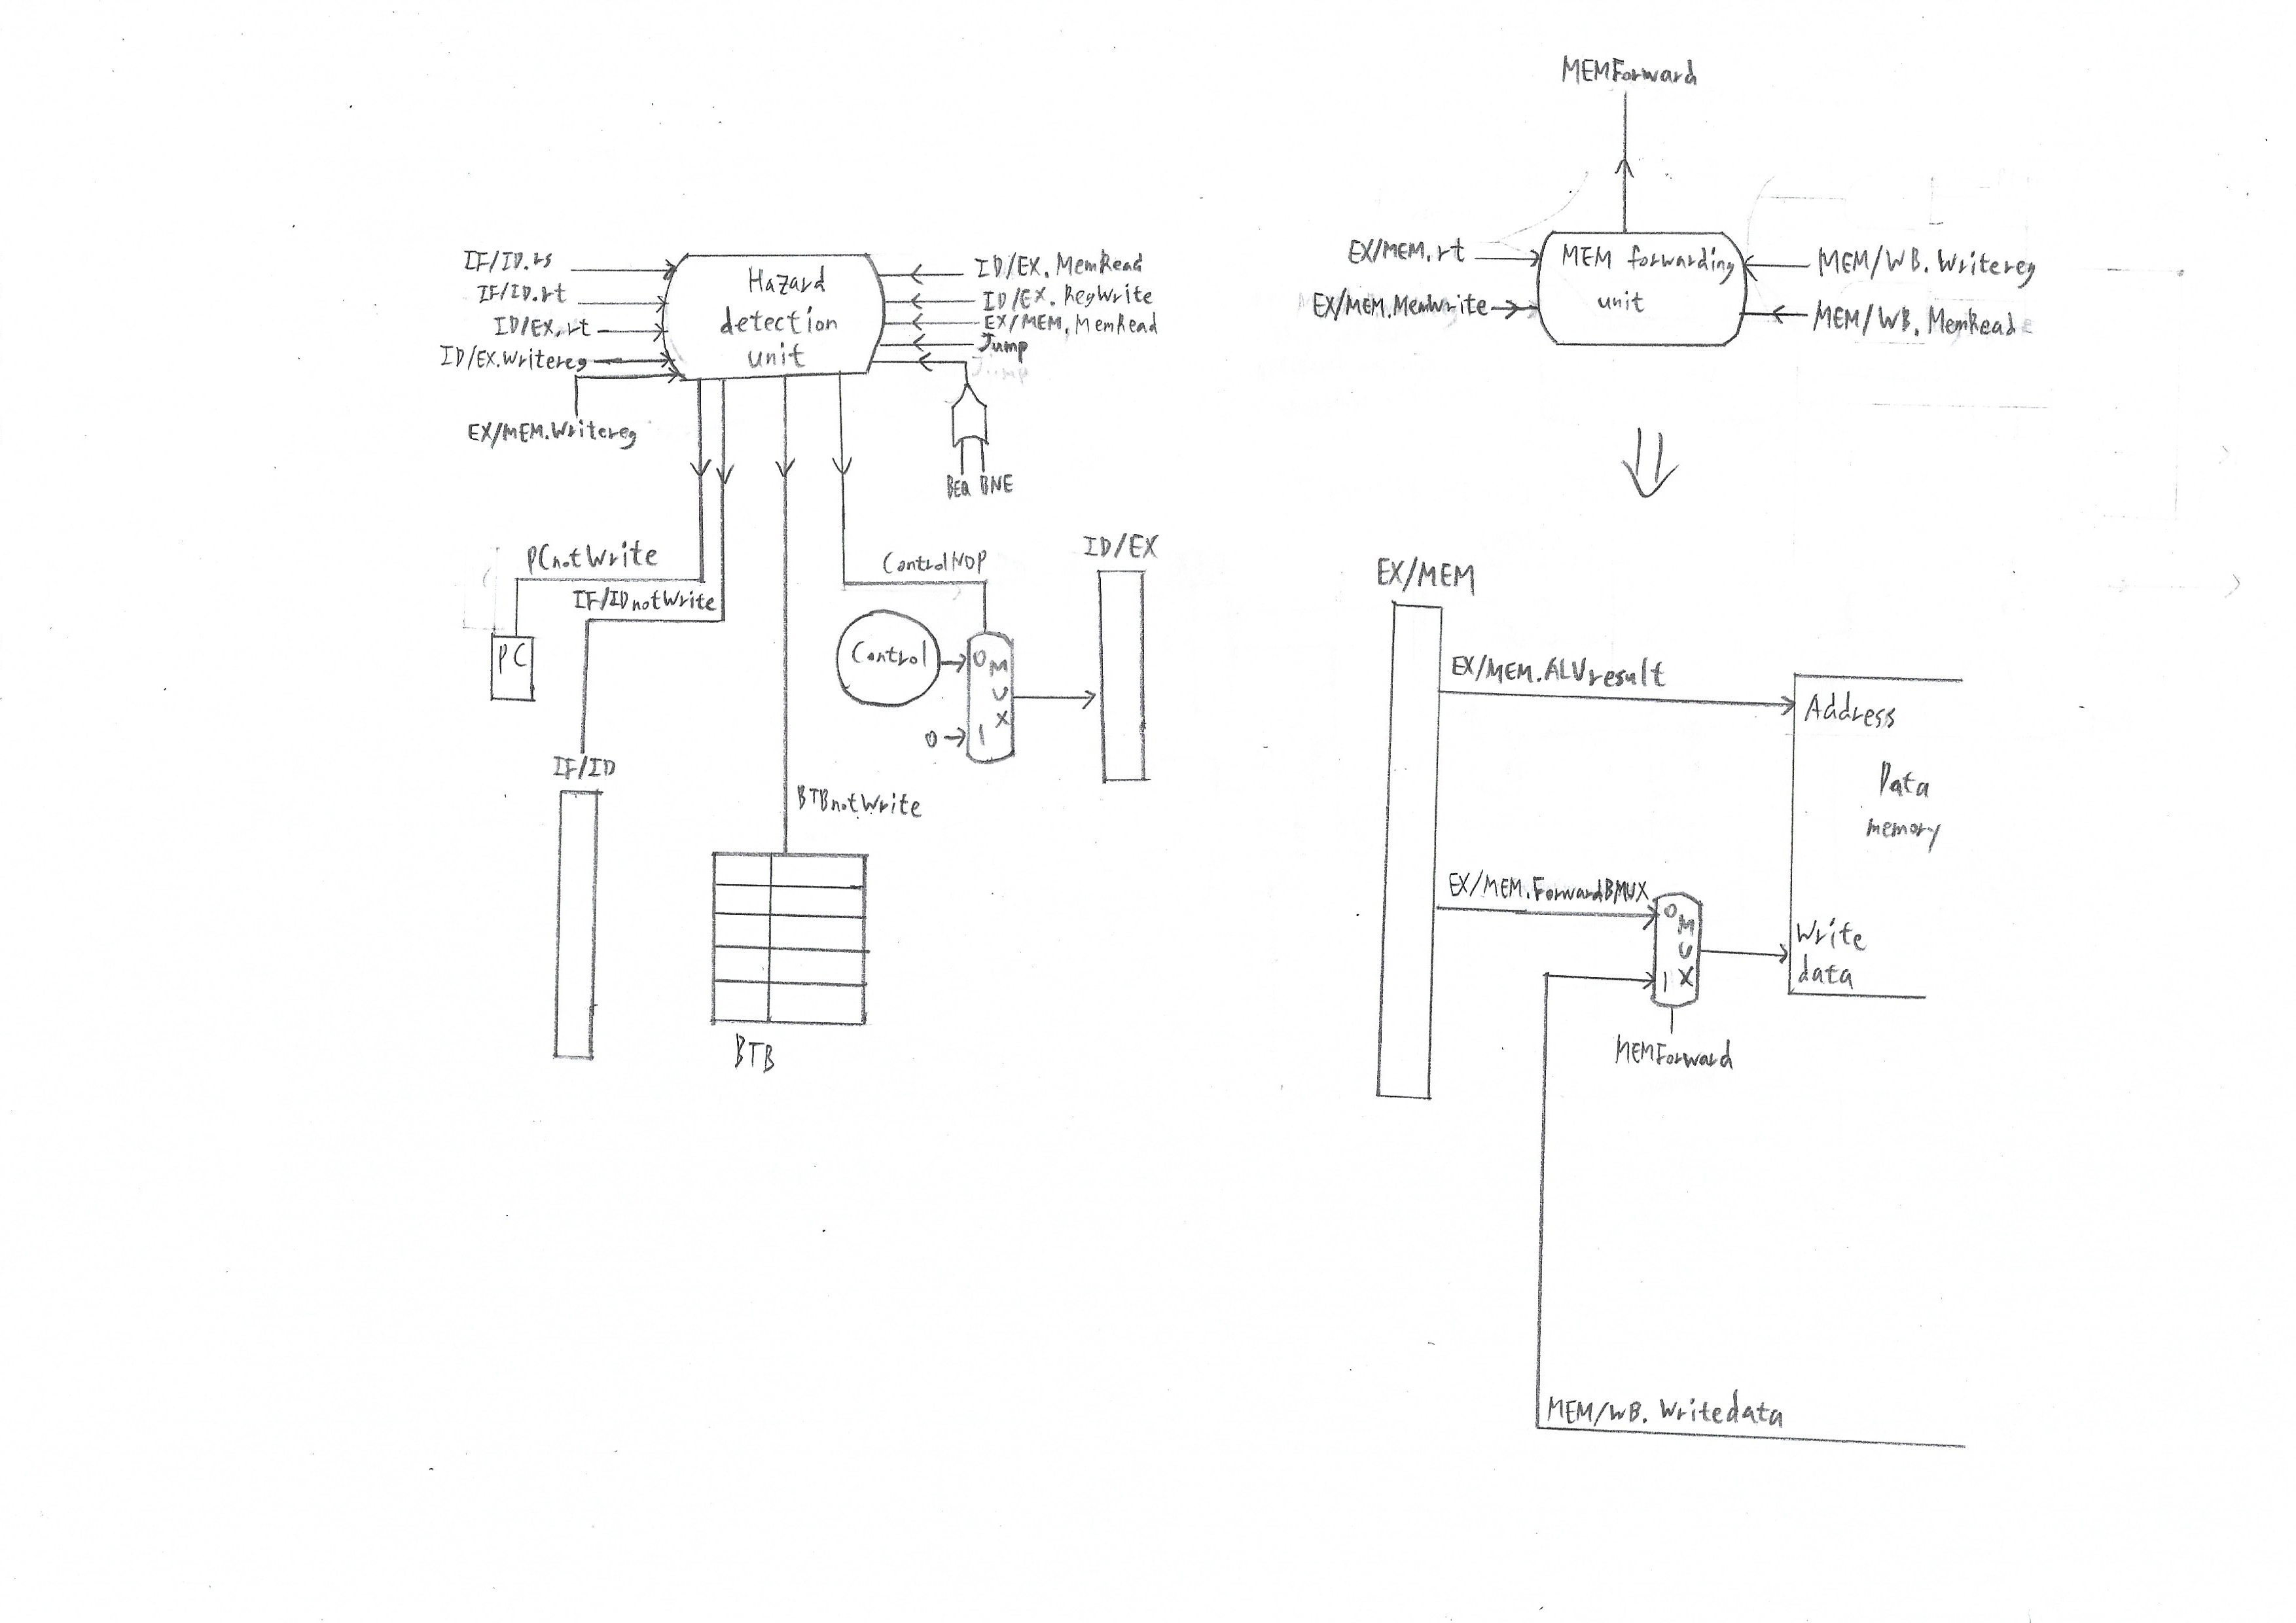 IF/ID.rs
IF/ID.rt
ID/EX.rt
ID/EX.Writereg
EX/MEM.Writereg
Hazard
detection
unit
ID/EX.MemRead
ID/EX.RegWrite
EX/MEM.MemRead
Jump
BEQ BNE
PCnotWrite
IF/IDnotWrite
PC
IF/ID
BTBnotWrite
BTB
ControlNOP
Control
0
0
1
M
U
X
ID/EX
MEMForward
EX/MEM.rt
EX/MEM.MemWrite
MEM forwarding
unit
MEM/WB.Writereg
MEM/WB.MemRead
EX/MEM
EX/MEM.ALUresult
Address
Data
memory
EX/MEM.ForwardBMUX
0
M
U
1 X
Write
data
MEMForward
MEM/WB.Writedata